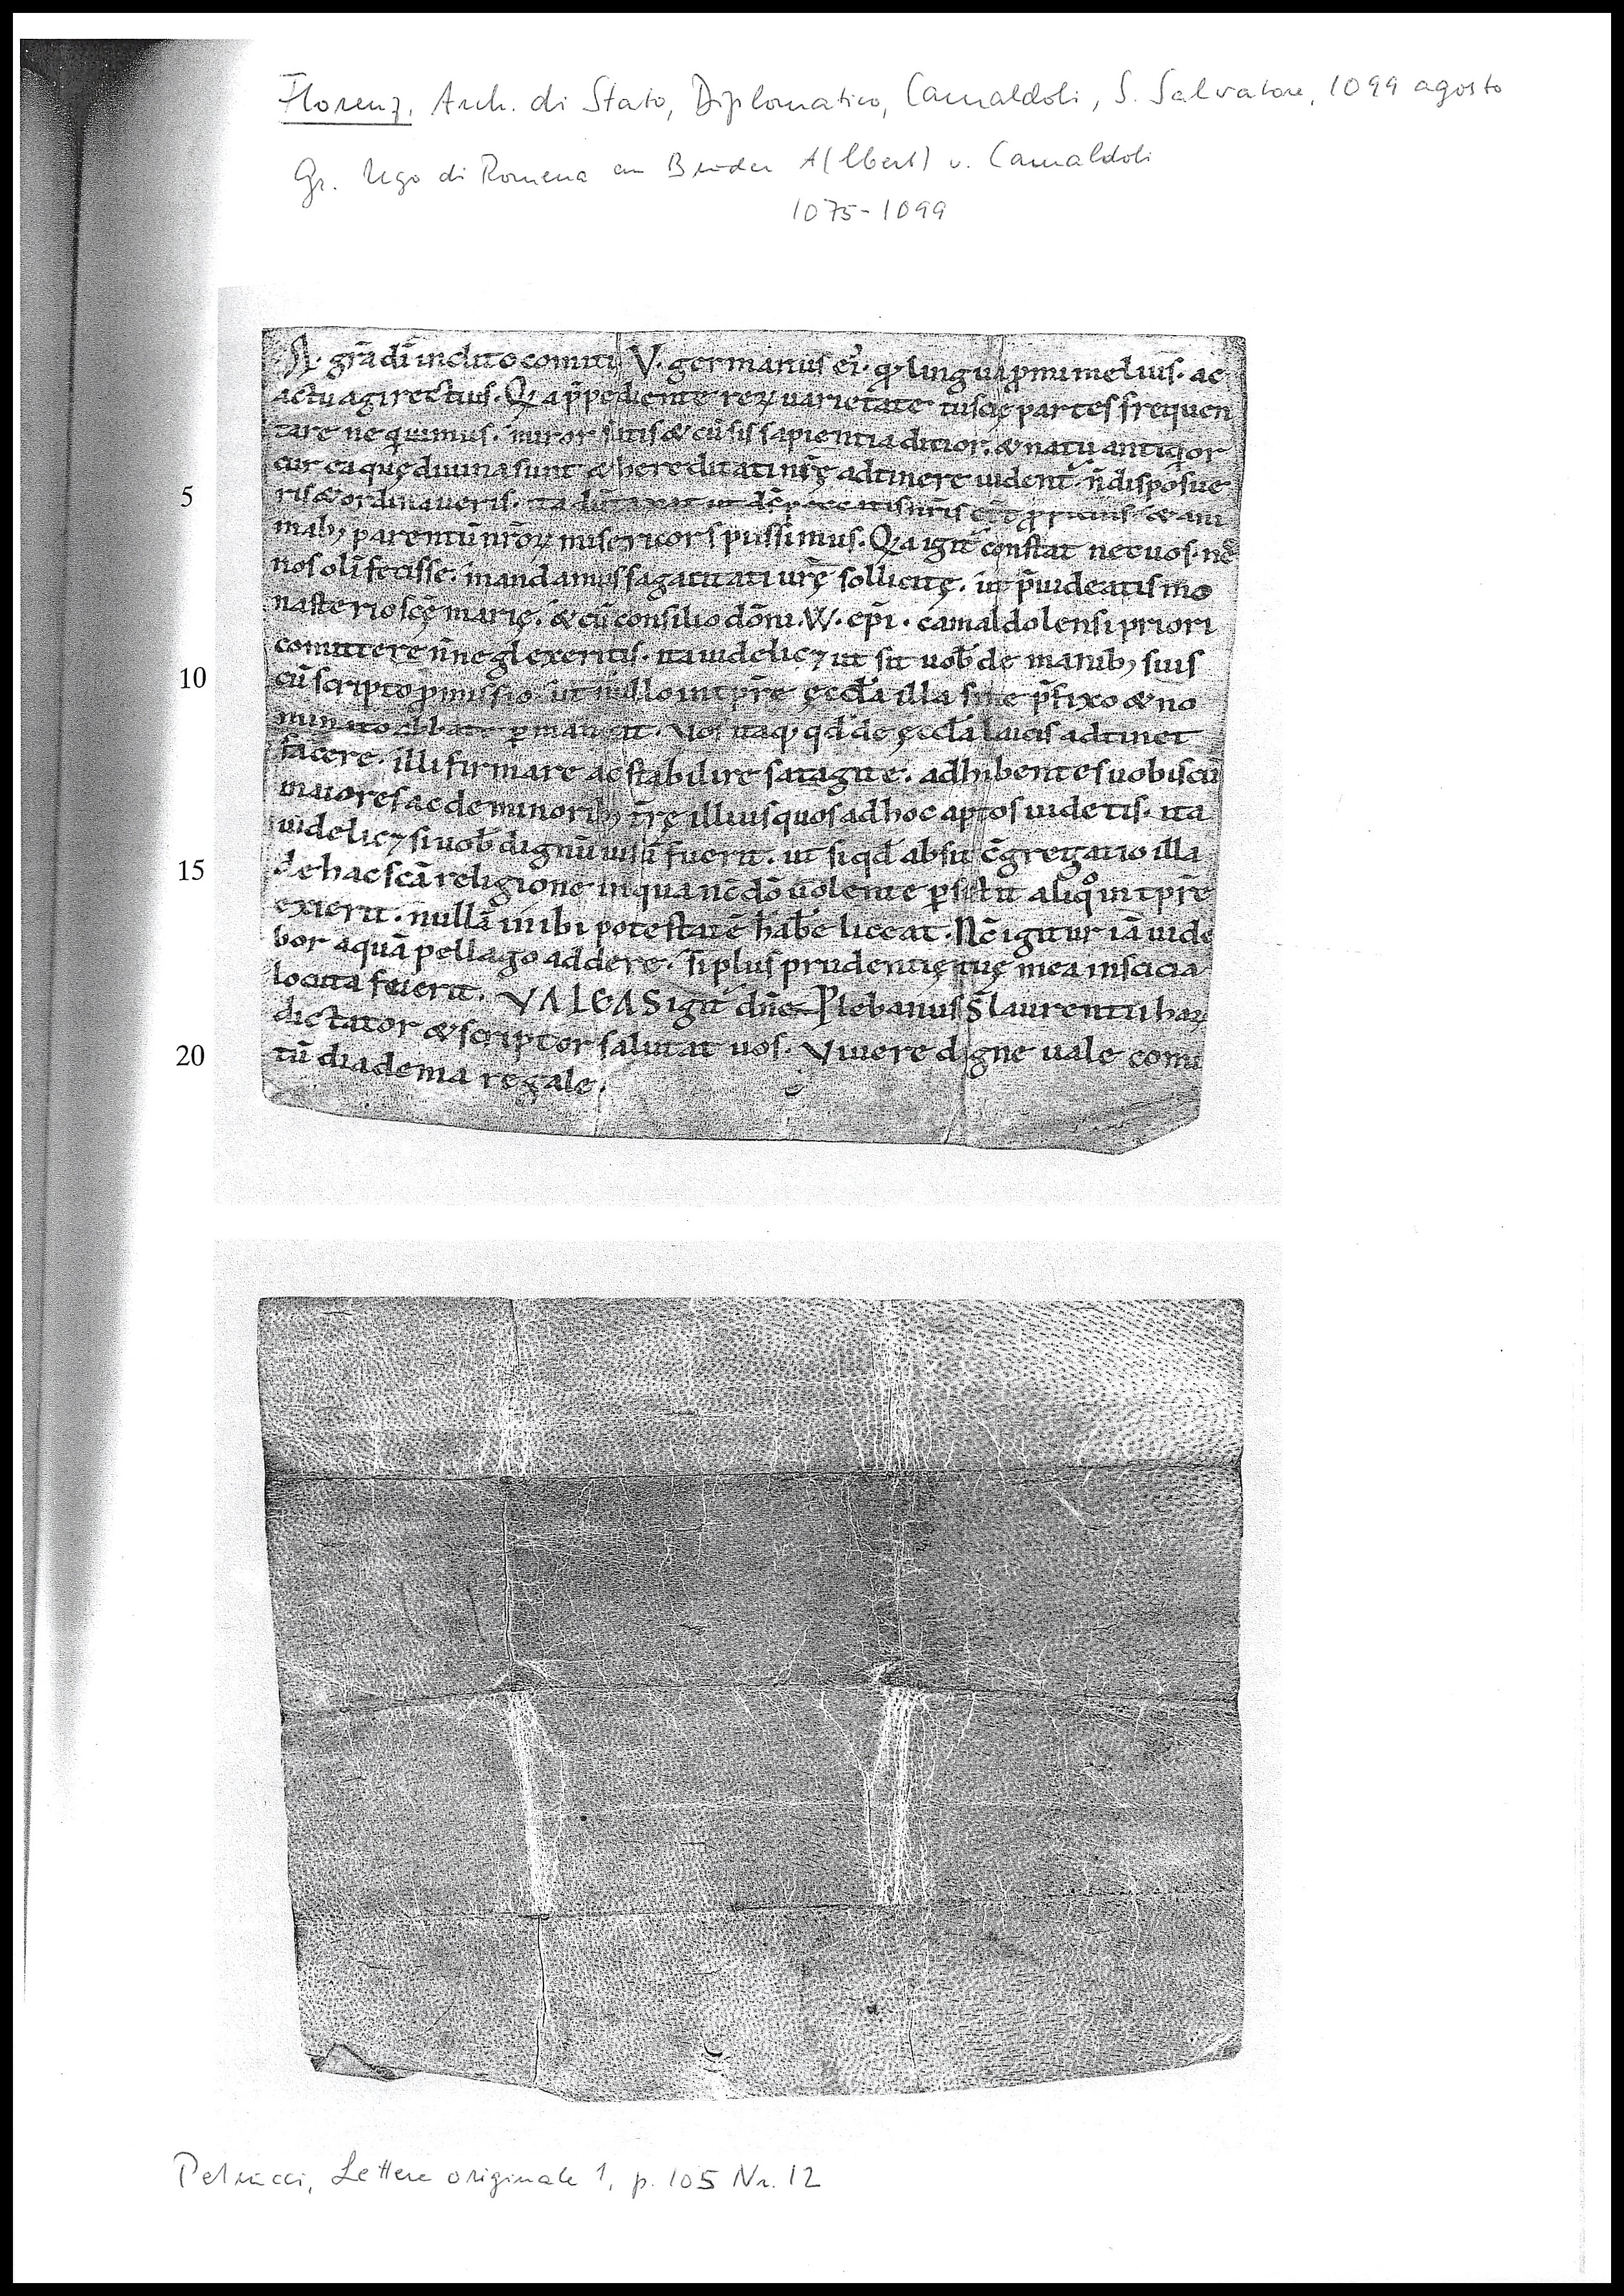 Florenz, Arch. di Stato, Diplomatico, Camaldoli, S. Salvatore, 1099 agosto
Gr. Ugo di Romena an Bruder A(lbert) v. Camaldoli
1075-1099
·A· gr̄a dī inclito comiti V· germanus eı̓· q̨ lingua ꝓmı melius· ac
actu agi rectius· Q̨a p̄pediente reꝝ uarietate tuscię partes frequen
tare nequimus· miror satis & cū sis sapientia ditior· & natu antiq̓or
cur ea quę diuina sunt & hereditati nr̄ę adtinere uident̄ n̄ disposue
5
ris & ordinaueris· ita ut dē peccatis nr̄is & ani
mab; parentū nr̄oꝝ misericors piissimus· Q̨a igit̄ constat nec uos· nec̄
nos oli᷒ fecisse· mandamus sagacitati ur̄ę sollicitę· ut p̄uideatis mo
nasterio sc̄ę marię· & cū consilio dōni· W· ep̄i· camaldolensi priori
comittere n̄ neglexeritis· ita uidelic⁊ ut sit uob̄ de manib; suis
10
cū scripto ꝓmissio· ut nullo intp̄re ęccl̄a illa sine p̄fixo & no
minato abbate ꝑmaneat· Vos itaq; qd̄ de ęccl̄a laicis adtinet
facere· illi firmare ac stabilire satagite· adhibentes uobiscū
maiores ac de minorib; tr̄ę illius quos ad hoc aptos uidetis· ita
uidelic⁊ si uob̄ dignū uisū fuerit· ut siqd̄ absit c̄gregatio illa
15
de hac sc̄a religione in qua nc̄ dō uolente ꝑsistit aliqͦ intp̄re
exierit· nullā inibi potestatē hab̄e liceat· Nc̄ igitur iā uide
bor aquā pellago addere· si plus prudentię tuę mea inscicia
locuta fuerit· VALEAS igit̄ dn̄e Plebanus S̄ laurentii haꝝ
dictator & scriptor salutat uos· Viuere digne uale comi
20
tū diadema regale·
Petrucci, Lettere originale 1, p. 105 Nr. 12